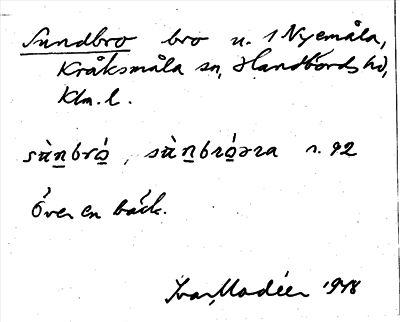 Sundbro bro u. 1 Nyemåla,
Kråksmåla sn, Handbörds hd,
Klm. l.
sùn̲brό̲, sùn̲bró̲ɜra s. 92
Över en bäck.
Ivar Modéer 1948